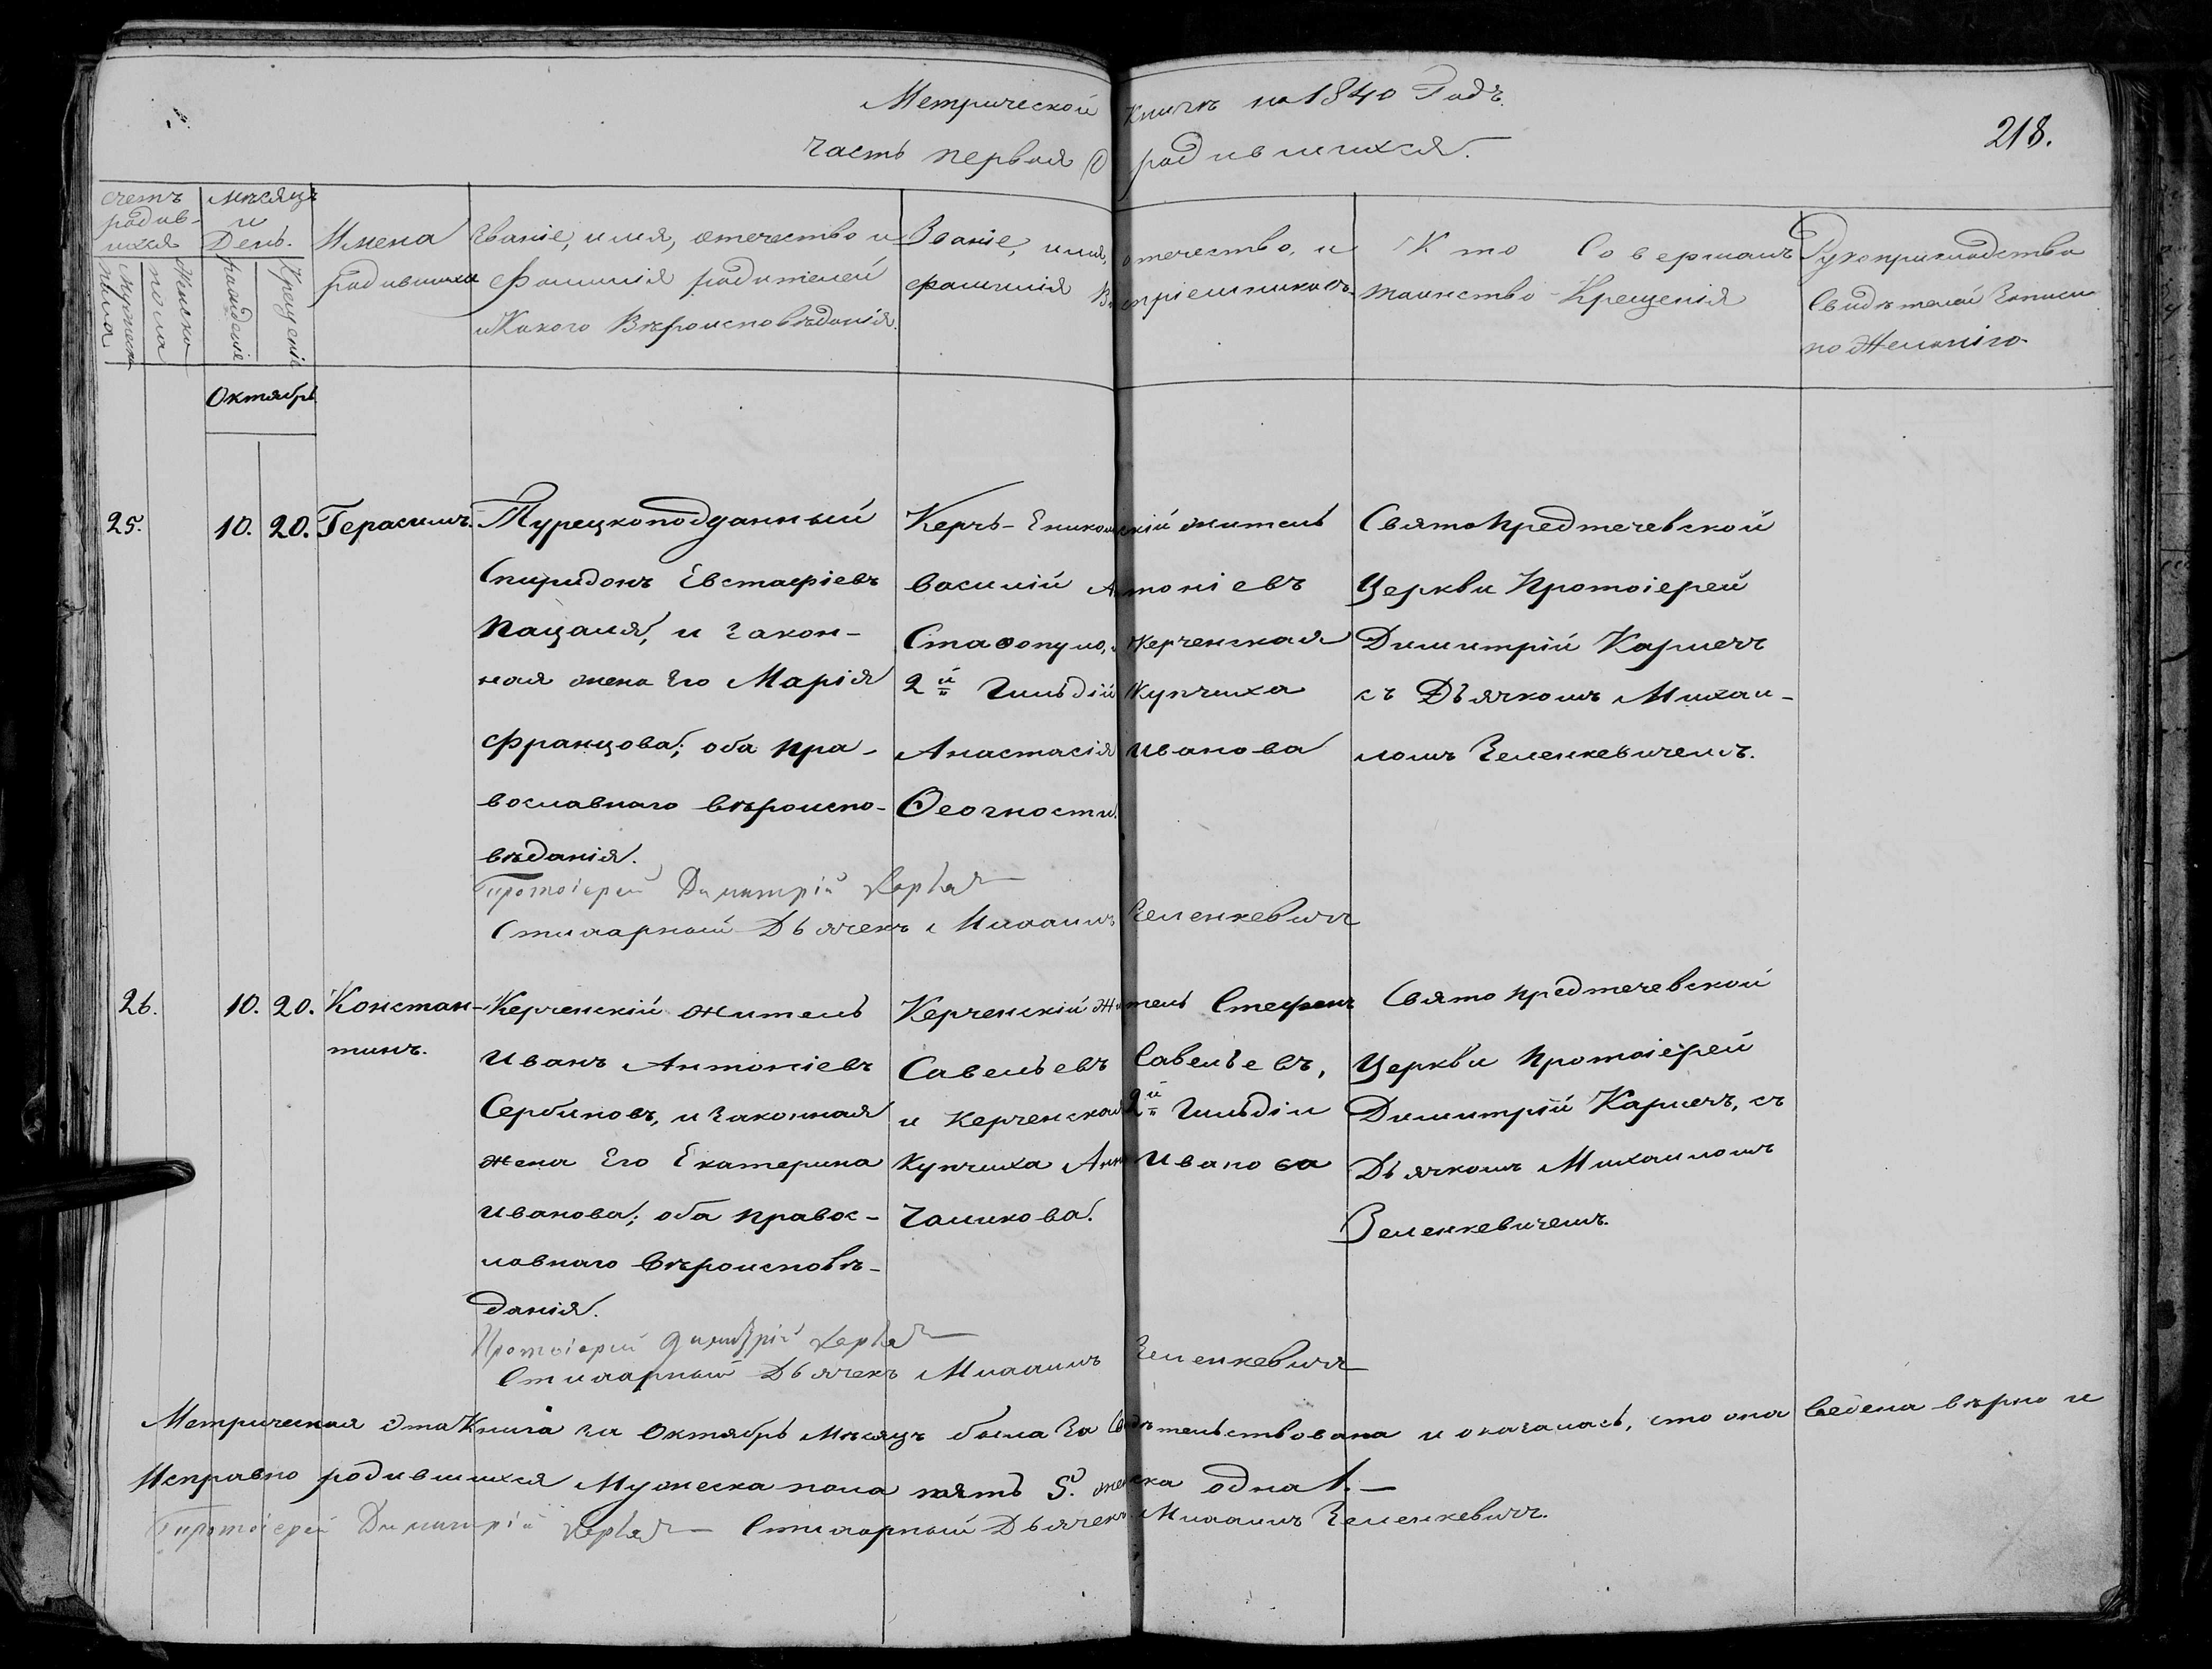 Метрической Книги на 1840 Годъ.
часть первая О родившихся.
218.
счетъ родив- шихся
Мужеска пола
Женска пола
мѣсяцъ и День.
рожденіе
Крещеніе
Имена
родившихся
Званіе, имя, отечество и
Фамилія родителей
и Какого Вѣроисповѣданія.
Званіе, имя, отечество, и
фамилія Воспріемниковъ.
Кто Совершалъ
таинство Крещенія
Рукоприкладство
Свидѣтелей Записи
по Желанію
Октябрь
25. 10. 20. Герасимъ.
Турецкоподданный
Спиридонъ Евстафіевъ
Пацаля, и закон-
ная жена Его Марія
Францова; оба пра-
вославнаго вѣроиспо-
вѣданія.
Керчь-Еникольскій житель
Василій Антоніевъ
Ставопуло, и Керченская
2й Гильдіи Купчиха
Анастасія Иванова
Ѳеогности.
Святопредтечевской
Церкви Протоіерей
Димитрій Кармечъ
съ Дьячкомъ Михаи-
ломъ Зеленкевичемъ.
Протоіерей Димитрій
Стихарный Дьячекъ Михаилъ Зеленкевичъ
26. 10. 20. Констан-
тинъ.
Керченскій житель
Иванъ Антоніевъ
Сербиновъ, и законная
жена Его Екатерина
Иванова; оба правос-
лавнаго Вѣроисповѣ-
данія.
Керченскій Житель Стефанъ
Савельевъ Савельевъ,
и Керченская 2й Гильдіи
Купчиха Анна Иванова
Галикова.
Святопредтечевской
Церкви Протоіерей
Димитрій Кармечъ, съ
Дьячкомъ Михаиломъ
Зеленкевичемъ.
Протоіерей Димитрій
Стихарный Дьячекъ Михаилъ Зеленкевичъ
Метрическая эта Книга за Октябрь Мѣсяцъ была Засвидѣтельствована и оказалась, что она ведена вѣрно и
Исправно родившихся Мужеска пола пять 5. женска одна 1.—
Протоіерей Димитрій Стихарный Дьячекъ Михаилъ Зеленкевичъ.